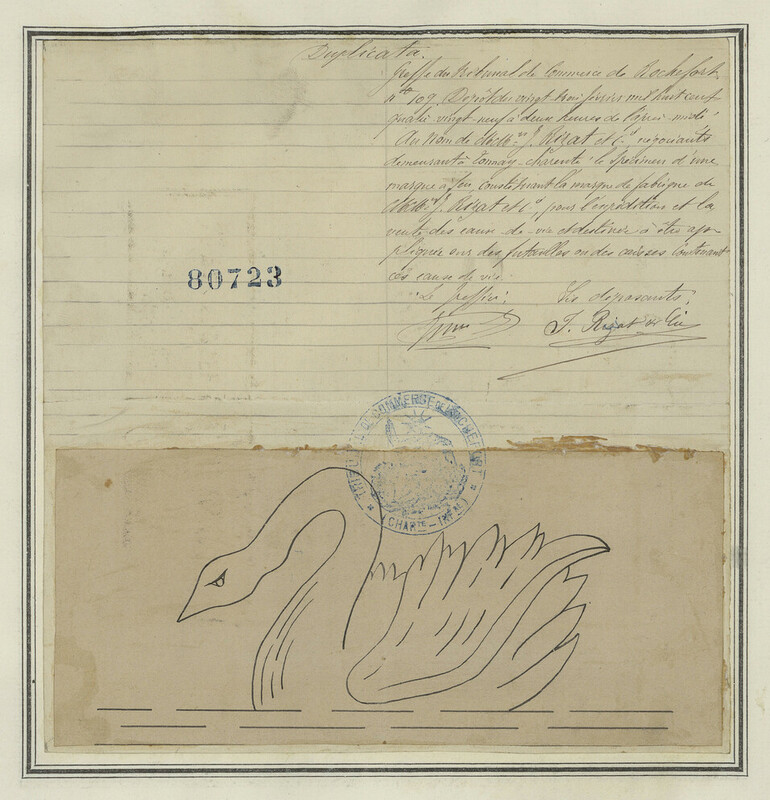 Duplicata.
Greffe du Tribunal de Commerce de Rochefort
N° 109. Dépôt du vingt trois février mil huit cent
quatre vingt neuf à deux heures de l'après-midi
Au nom de MM. J. Rizat et Cie négociants
demeurant à Tonnay-Charente le spécimen d'une
marque à feu, constituant la marque de fabrique de
MM. J. Rizat et Cie, pour l'expédition et la
vente des eaux-de-vie et destinée à être ap-
pliquée sur des futailles ou des caisses contenant
ces eaux de vie.
80723
Le Greffier; Les déposants;
J. Rizat & Cie
TRIBUNAL DE COMMERCE DE ROCHEFORT
(CHARTE - INFRE)